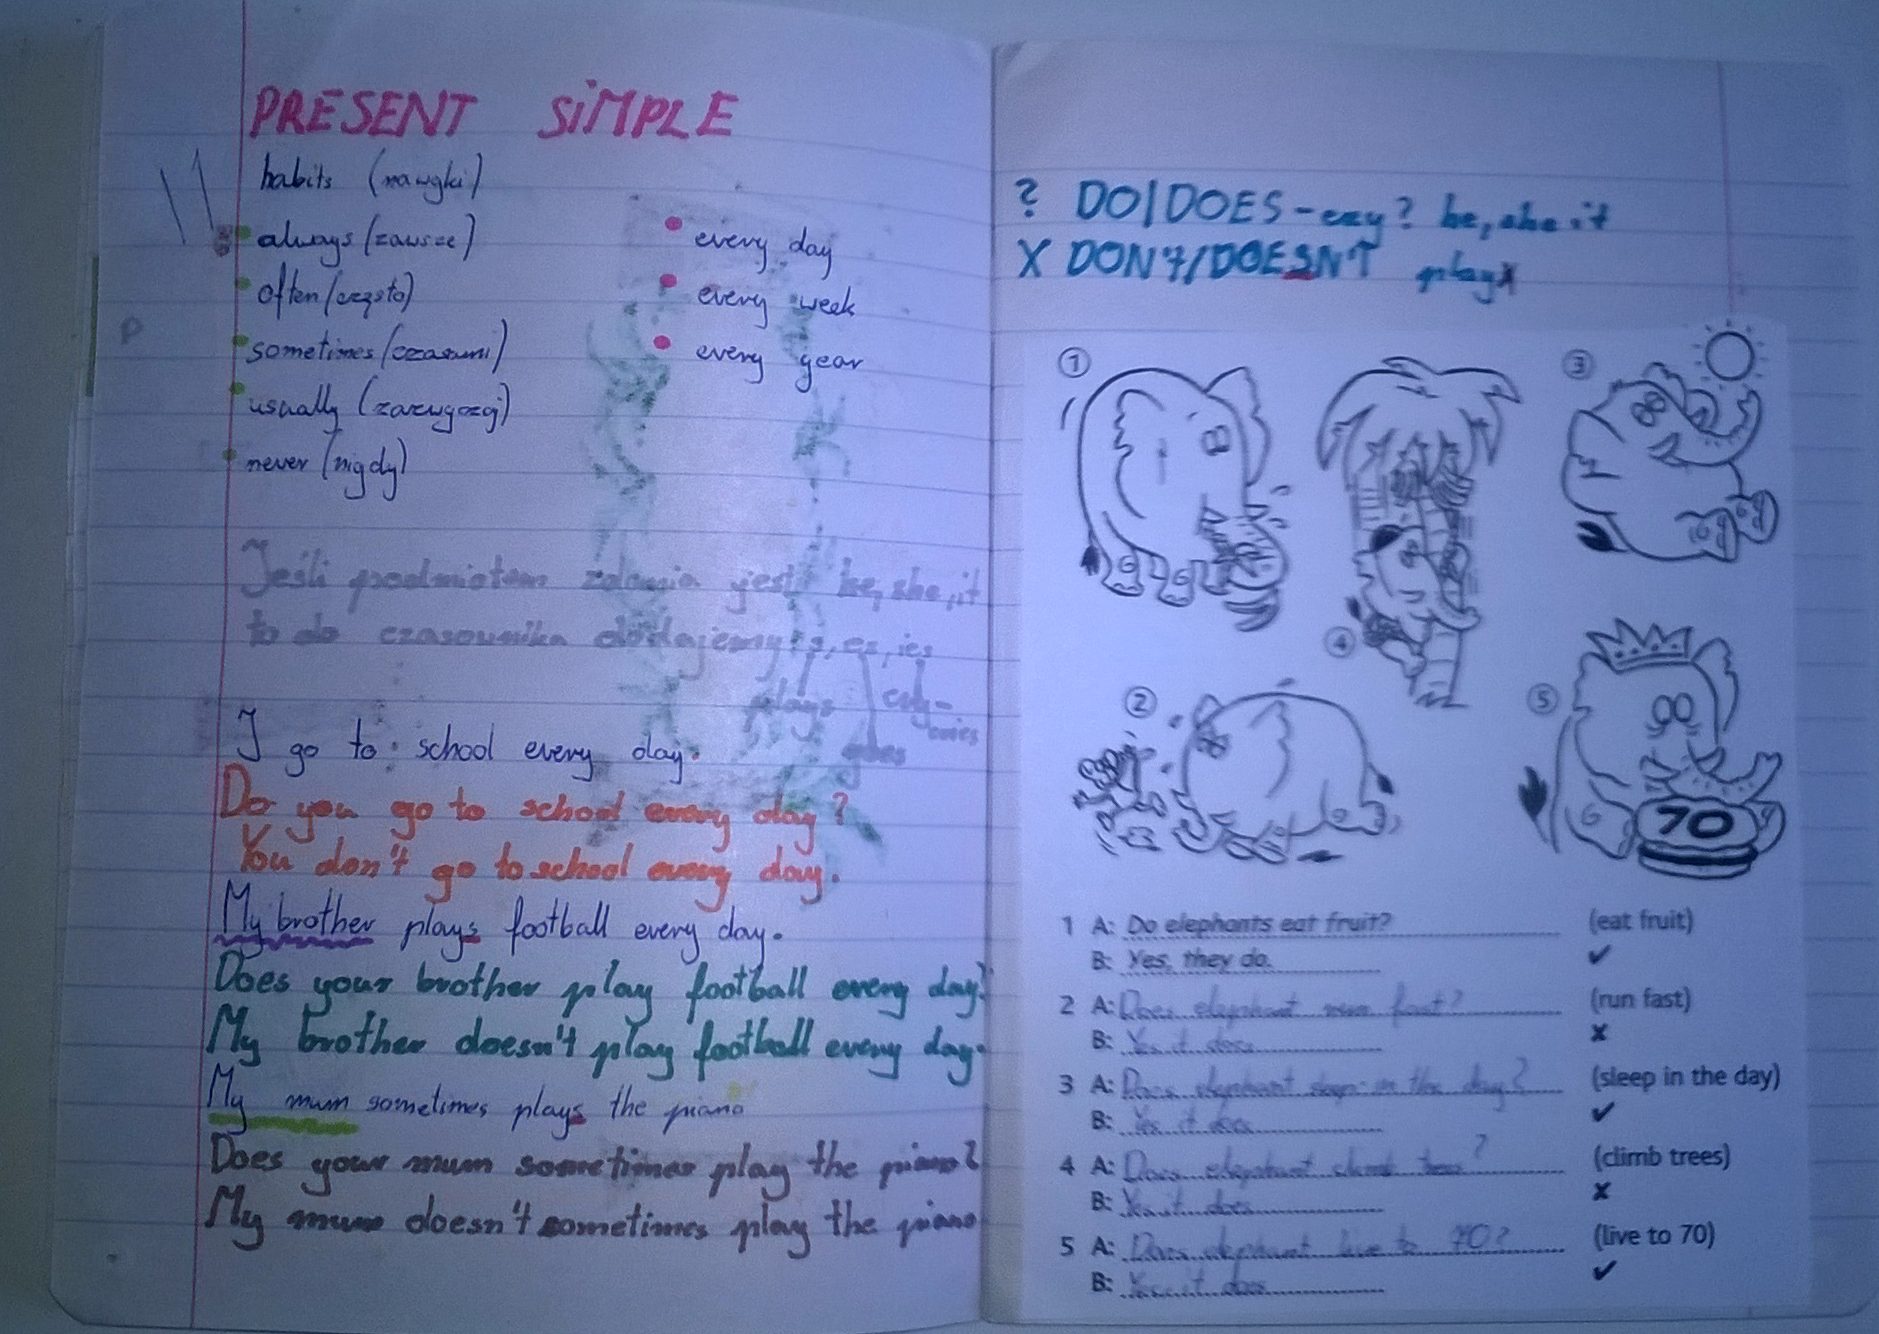 PRESENT SiMPLE
habits (nawyki)
always (zawsze)
often (często)
sometimes (czasami)
usually (zazwyczaj)
never (nigdy)
every day
every week
every year
Jeśli podmiotem zdania jest he, she, it
to do czasownika dodajemy s, es, ies
plays
goes
cry-
cries
I go to school every day.
Do you go to school every day?
You don't go to school every day.
My brother plays football every day.
Does your brother play football every day?
My brother doesn't play football every day.
My mum sometimes plays the piano
Does your mum sometimes play the piano?
My mum doesn't sometimes play the piano
? DO/DOES - czy? he, she it
X DON'T/DOESN'T play
1
3
4
2
5
70
1 A: Do elephants eat fruit? (eat fruit)
B: Yes, they do. ✓
2 A: Does elephant run fast? (run fast)
B: Yes it does ✗
3 A: Does elephant sleep in the day? (sleep in the day)
B: Yes it does ✓
4 A: Does elephant climb trees? (climb trees)
B: Yes it does ✗
5 A: Does elephant live to 70? (live to 70)
B: Yes it does ✓